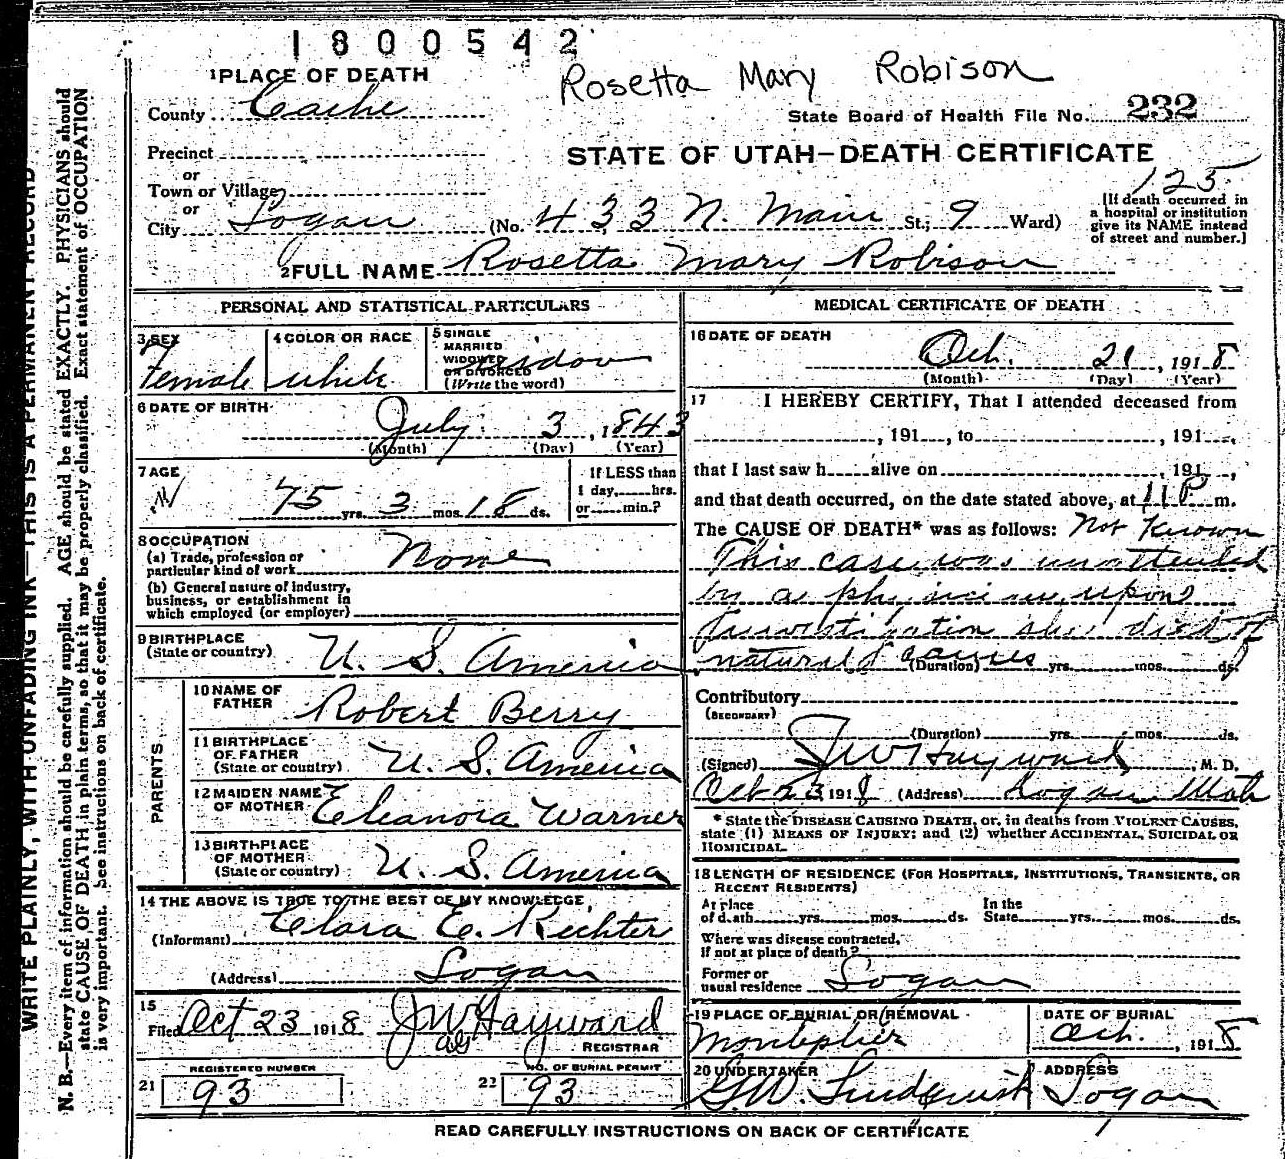 1800542
Rosetta Mary Robison
1 PLACE OF DEATH
County Cache
State Board of Health File No. 232
Precinct
or
STATE OF UTAH—DEATH CERTIFICATE
Town or Village
or
125
City Logan (No. 433 N. Main St.; 9 Ward)
[If death occurred in
a hospital or institution
give its NAME instead
of street and number.]
2 FULL NAME Rosetta Mary Robison
PERSONAL AND STATISTICAL PARTICULARS
3 SEX
Female
4 COLOR OR RACE
white
5 SINGLE
MARRIED
WIDOWED
OR DIVORCED
(Write the word)
widow
6 DATE OF BIRTH
July 3, 1843
(Month) (Day) (Year)
7 AGE
75 yrs. 3 mos. 18 ds.
If LESS than
1 day, hrs.
or min.?
8 OCCUPATION
(a) Trade, profession or
particular kind of work None
(b) General nature of industry,
business, or establishment in
which employed (or employer)
9 BIRTHPLACE
(State or country) U. S. America
PARENTS
10 NAME OF
FATHER Robert Berry
11 BIRTHPLACE
OF FATHER
(State or country) U. S. America
12 MAIDEN NAME
OF MOTHER Eleanora Warner
13 BIRTHPLACE
OF MOTHER
(State or country) U. S. America
14 THE ABOVE IS TRUE TO THE BEST OF MY KNOWLEDGE,
(Informant) Clara E. Richter
(Address) Logan
15
Filed Oct 23 1918 JW Hayward
REGISTRAR
REGISTERED NUMBER
21 93
NO. OF BURIAL PERMIT
22 93
MEDICAL CERTIFICATE OF DEATH
16 DATE OF DEATH
Oct. 21, 1918
(Month) (Day) (Year)
17 I HEREBY CERTIFY, That I attended deceased from
, 191 , to , 191 ,
that I last saw h alive on , 191 ,
and that death occurred, on the date stated above, at 11 P m.
The CAUSE OF DEATH* was as follows: Not Known
This case was unattended
by a physician, upon
Investigation she died of
natural causes (Duration) yrs. mos. ds.
Contributory
(SECONDARY)
(Duration) yrs. mos. ds.
(Signed) JW Hayward, M. D.
Oct 23 1918 (Address) Logan Utah
* State the DISEASE CAUSING DEATH, or, in deaths from VIOLENT CAUSES,
state (1) MEANS OF INJURY; and (2) whether ACCIDENTAL, SUICIDAL OR
HOMICIDAL.
18 LENGTH OF RESIDENCE (FOR HOSPITALS, INSTITUTIONS, TRANSIENTS, OR
RECENT RESIDENTS)
At place
of death yrs. mos. ds.
In the
State yrs. mos. ds.
Where was disease contracted,
if not at place of death?
Former or
usual residence Logan
19 PLACE OF BURIAL OR REMOVAL
Montpelier
DATE OF BURIAL
Oct. , 1918
20 UNDERTAKER
G.W. Lindquist
ADDRESS
Logan
READ CAREFULLY INSTRUCTIONS ON BACK OF CERTIFICATE
WRITE PLAINLY, WITH UNFADING INK—THIS IS A PERMANENT RECORD
N. B.—Every item of information should be carefully supplied. AGE should be stated EXACTLY. PHYSICIANS should
state CAUSE OF DEATH in plain terms, so that it may be properly classified. Exact statement of OCCUPATION
is very important. See instructions on back of certificate.